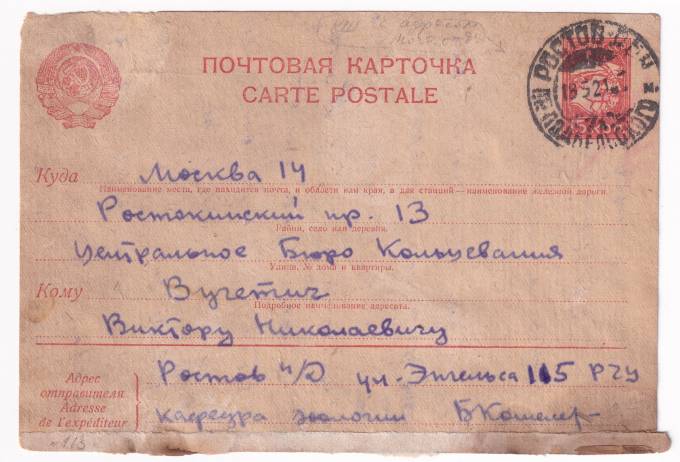 с адресом
ПОЧТОВАЯ КАРТОЧКА
CARTE POSTALE
РОСТОВ
Куда Москва 14
Наименование места, где находится почта, и области или края, а для станций—наименование железной дороги.
Ростокинский пр. 13
Район, село или деревня.
Центральное Бюро Кольцевания
Улица, № дома и квартиры.
Кому Вучетич
Подробное наименование адресата.
Виктору Николаевичу
Адрес отправителя
Adresse de l'expéditeur
Ростов н/Д ул. Энгельса 115 РГУ
кафедра зоологии